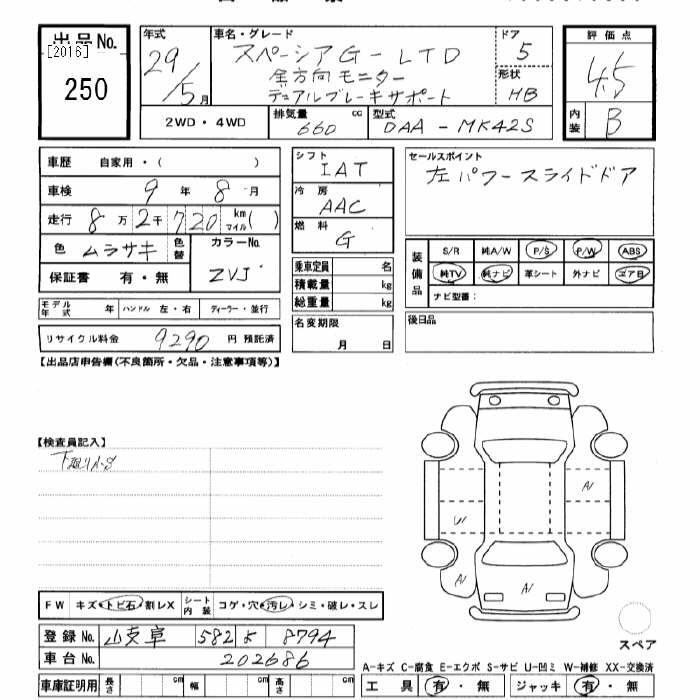 出品No.
[2016]
250
年式
29/5月
車名・グレード
スペーシア G-LTD
全方向モニター
デュアルブレーキサポート
ドア
5
形状
HB
評価点
4.5
内装
B
2WD・4WD
排気量
660 cc
型式
DAA-MK42S
車歴 自家用・( )
車検 9年 8月
走行 8万2千720 km マイル( )
色 ムラサキ 色替
カラーNo.
ZVJ
保証書 有・無
モデル年式 年 ハンドル 左・右 ディーラー・並行
リサイクル料金 9290 円 預託済
シフト
IAT
冷房
AAC
燃料
G
乗車定員 名
積載量 kg
総重量 kg
名変期限
月 日
セールスポイント
左パワースライドドア
装備品
S/R 純A/W P/S P/W ABS
純TV 純ナビ 革シート 外ナビ エアB
ナビ型番:
後日品
【出品店申告欄(不良箇所・欠品・注意事項等)】
【検査員記入】
A
U
A
A
FW キズ・トビ石・割レX シート内装 コゲ・穴・汚レ・シミ・破レ・スレ
登録No. 岐阜 582 8794
車台No. 202686
車庫証明用 長さ cm 幅 cm 高さ cm
スペア
A-キズ C-腐食 E-エクボ S-サビ U-凹ミ W-補修 XX-交換済
工具 有・無 ジャッキ 有・無